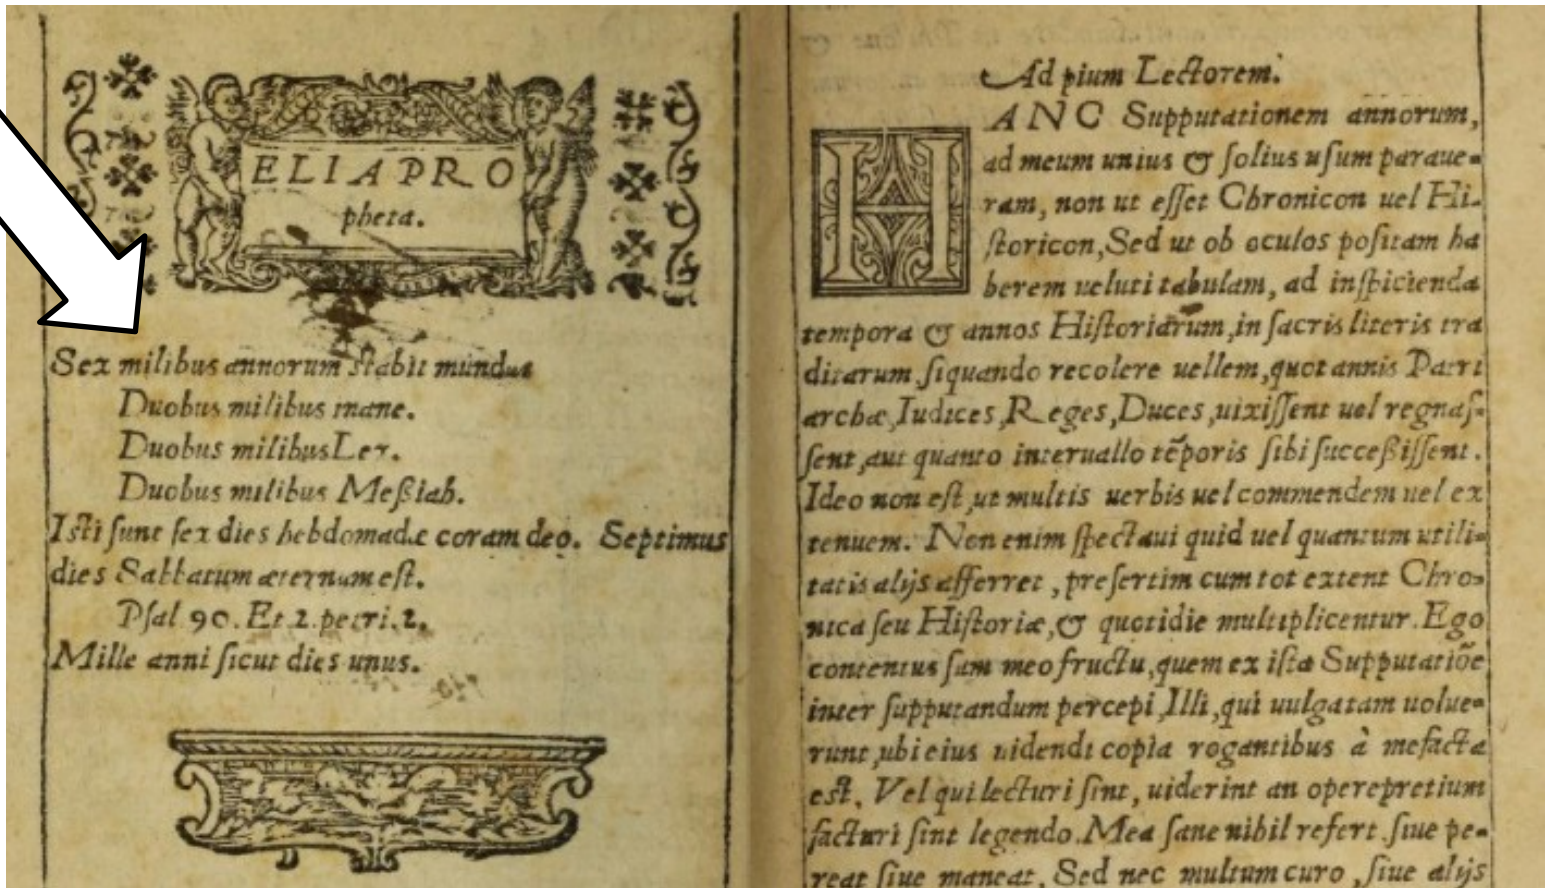 ELIA PRO
pheta.
Sex milibus annorum stabit mundus
Duobus milibus inane.
Duobus milibus Lex.
Duobus milibus Meßiah.
Isti sunt sex dies hebdomadæ coram deo. Septimus
dies Sabbatum æternum est.
Psal 90. Et 2. petri. 2.
Mille anni sicut dies unus.
Ad pium Lectorem.
HANC Supputationem annorum,
ad meum unius & solius usum paraue-
ram, non ut esset Chronicon uel Hi-
storicon, Sed ut ob oculos positam ha
berem ueluti tabulam, ad inspicienda
tempora & annos Historiarum, in sacris literis tra
ditarum, siquando recolere uellem, quot annis Patri
archæ, Iudices, Reges, Duces, uixissent uel regnas-
sent, aut quanto interuallo tẽporis sibi succeßissent.
Ideo non est, ut multis uerbis uel commendem uel ex
tenuem. Non enim spectaui quid uel quantum utili-
tatis alijs afferret, presertim cum tot extent Chro-
nica seu Historiæ, & quotidie multiplicentur. Ego
contentus sum meo fructu, quem ex ista Supputatiõe
inter supputandum percepi, Illi, qui uulgatam uolue-
runt, ubi eius uidendi copia rogantibus à me facta
est. Vel qui lecturi sint, uiderint an operepretium
facturi sint legendo. Mea sane nihil refert siue pe-
reat siue maneat, Sed nec multum curo, siue alijs